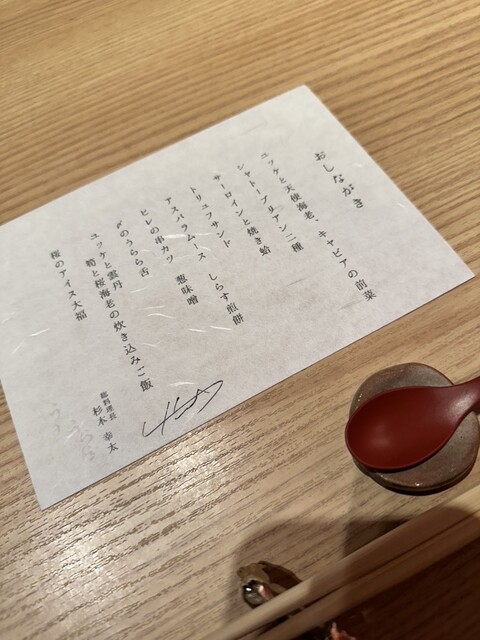 おしながき
ユッケと天使海老、キャビアの前菜
シャトーブリアン二種
サーロインと焼き蛤
トリュフサンド
アスパラムース しらす煎餅
ヒレの串カツ 葱味噌
〆のうらら舌
ユッケと雲丹
筍と桜海老の炊き込みご飯
桜のアイス大福
総料理長
杉本 幸太